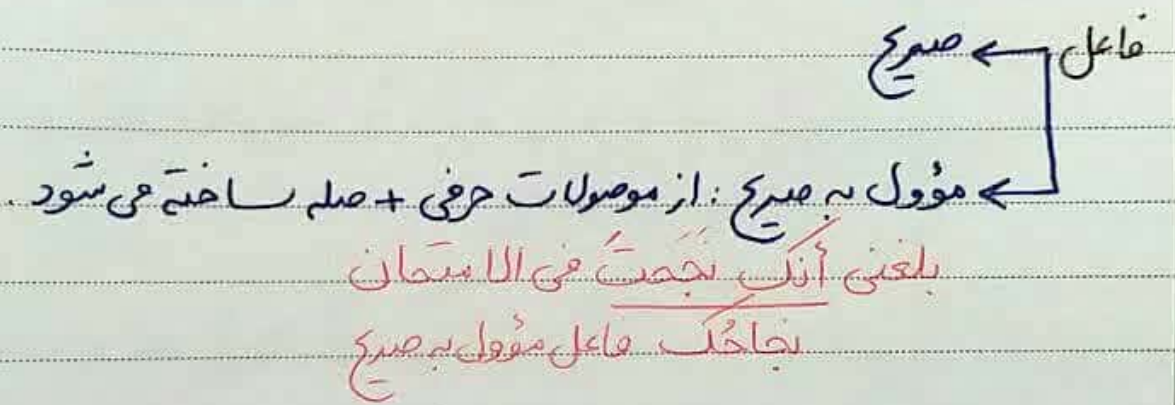 فاعل ← صریح
← مؤوول به صریح : از موصولات حرفی + صله ساخته می شود .
بلغنی أنکَ نَجَحتَ فی الامتحان
نجاحُک فاعل مؤول به صریح